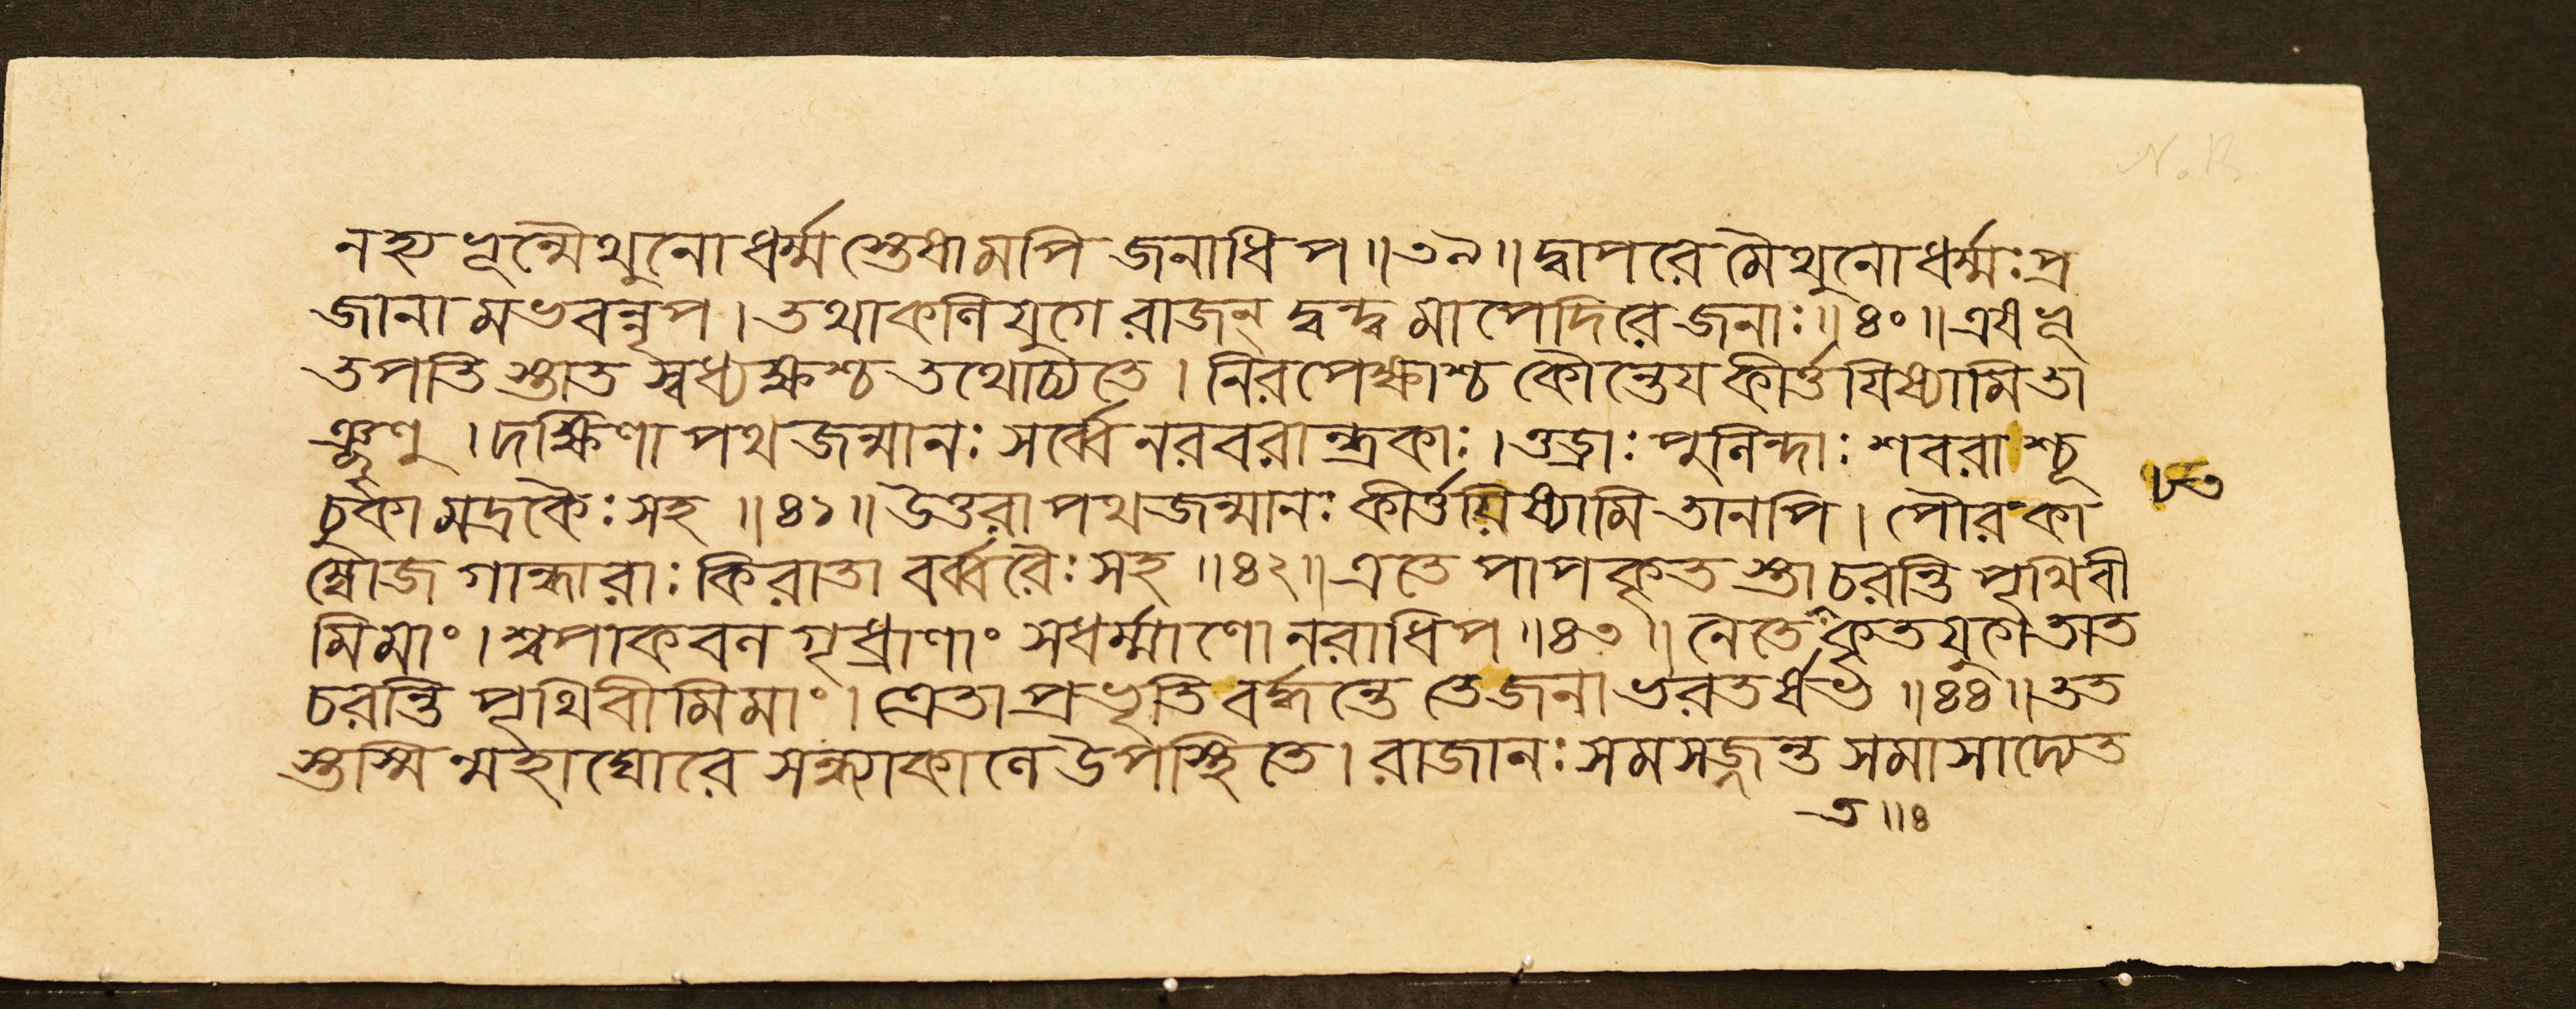 নহ্যভূন্মৈথুনোধর্ম্মস্তেষামপি জনাধিপ॥৩৯॥দ্বাপরে মৈথুনোধর্ম্মঃপ্র
জানামভবন্নৃপ।তথাকলিযুগে রাজন্ দ্বন্দ্বমাপেদিরেজনাঃ॥৪০॥এষভূ
তপতিস্তাত স্বধ্যক্ষশ্চ তথোচ্যতে।নিরপেক্ষাশ্চ কৌন্তেয় কীর্ত্তয়িষ্যামিতা
ঞ্ছৃণু।দক্ষিণাপথজন্মানঃ সর্ব্বেনরবরান্ধ্রকাঃ।ওড্রাঃ পুলিন্দাঃ শবরাশ্চূ
চুকামদ্রকৈঃসহ॥৪১॥উত্তরাপথজন্মানঃ কীর্ত্তয়িষ্যামিতানপি।পৌরকা
ম্বোজগান্ধারাঃ কিরাতা বর্ব্বরৈঃসহ॥৪২॥এতে পাপকৃতস্তাতচরন্তি পৃথিবী
মিমাং।শ্বপাকবলগৃধ্রাণাং সধর্ম্মাণোনরাধিপ॥৪৩॥নৈতে কৃতযুগেতাত
চরন্তি পৃথিবীমিমাং।ত্রেতাপ্রভৃতিবর্দ্ধন্তে তেজনাভরতর্ষভ॥৪৪॥তত
স্তস্মিন্মহাঘোরে সন্ধ্যাকালেউপস্থিতে।রাজানঃ সমসজ্জন্ত সমাসাদ্যেত
ত॥৪